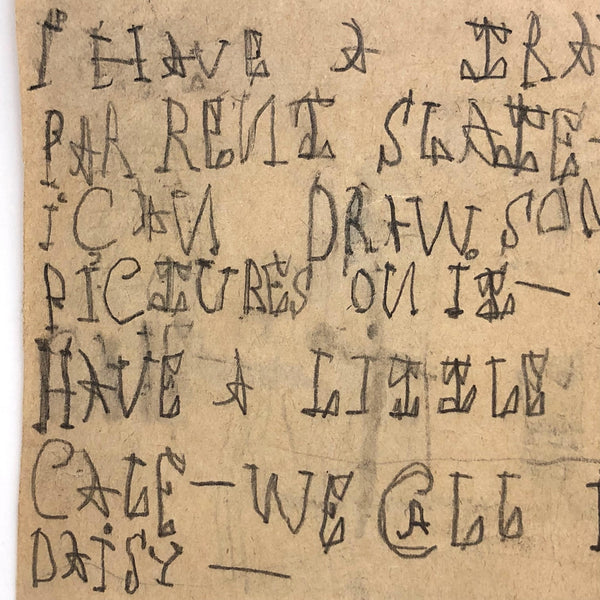 I HAVE A TRA
PARRENT SLATE-
I CAN DRAW SOM
PICTURES ON IT —
HAVE A LITTLE
CALE — WE CALL I
DAISY —